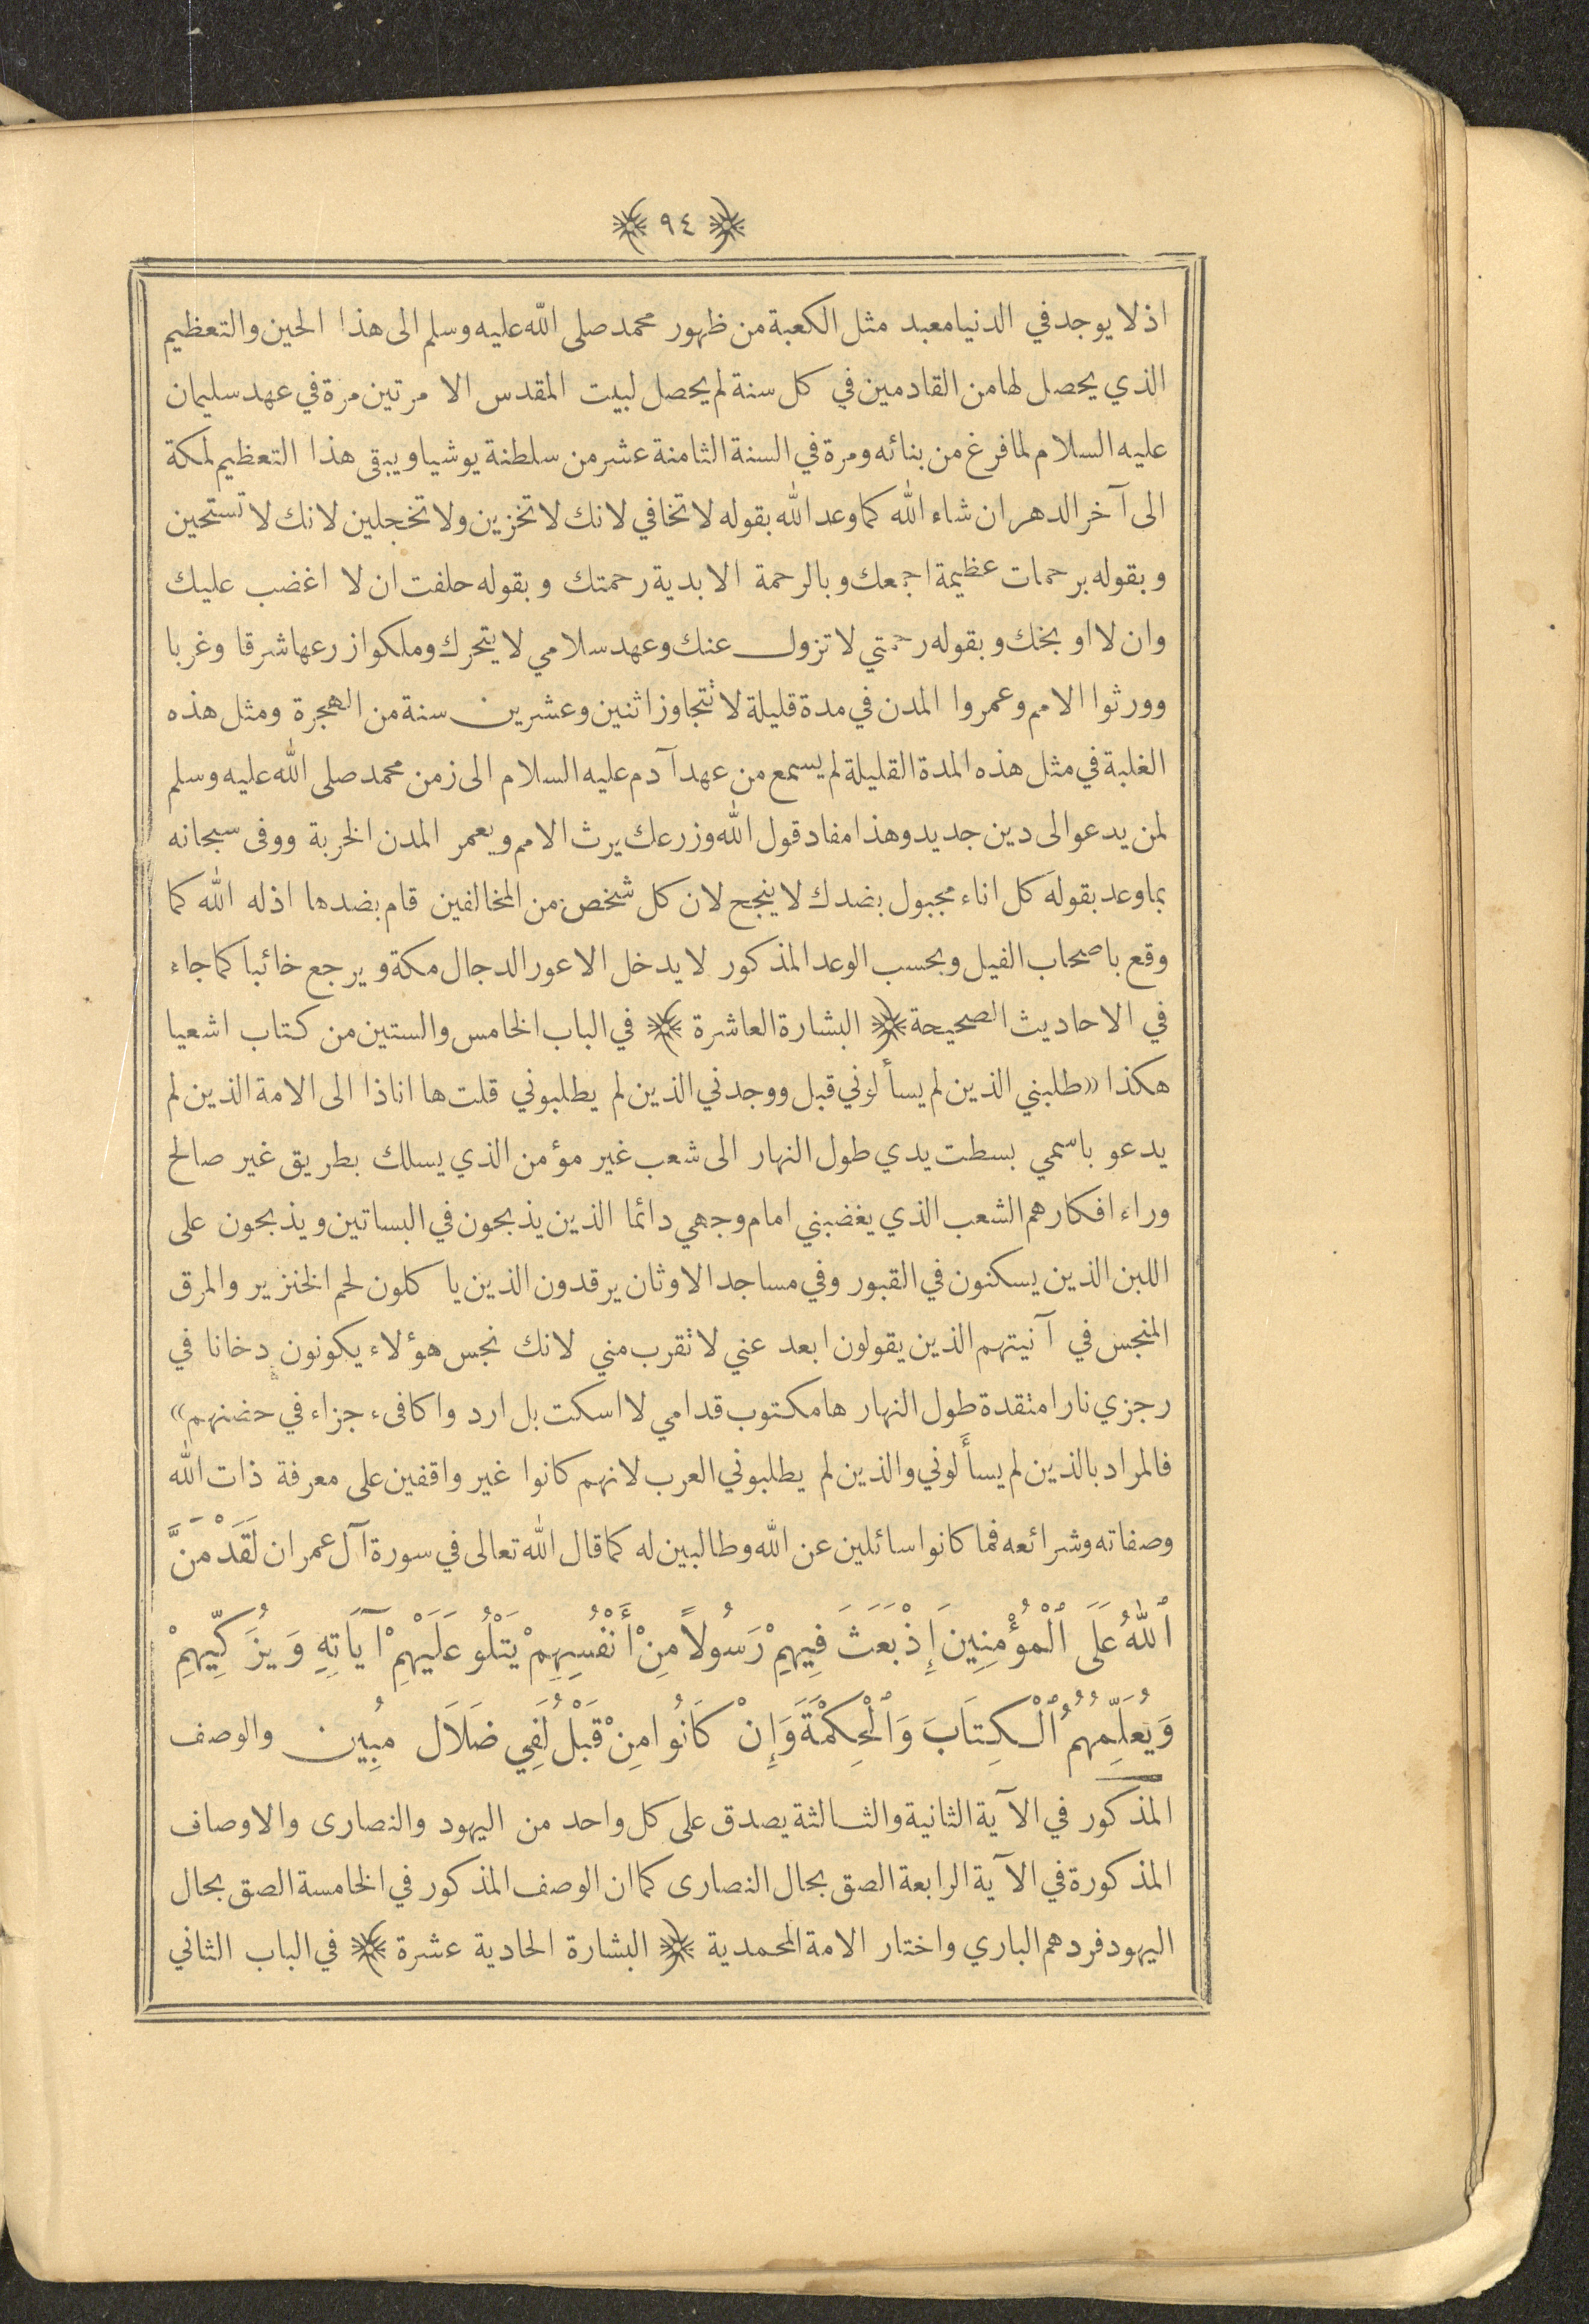 ﴿ ٩٤ ﴾
اذ لا يوجد في الدنيا معبد مثل الكعبة من ظهور محمد صلى الله عليه وسلم الى هذا الحين والتعظيم
الذي يحصل لها من القادمين في كل سنة لم يحصل لبيت المقدس الا مرتين مرة في عهد سليمان
عليه السلام لما فرغ من بنائه ومرة في السنة الثامنة عشر من سلطنة يوشيا ويبقى هذا التعظيم لمكة
الى آخر الدهر ان شاء الله كما وعد الله بقوله لا تخافي لانك لا تخزين ولا تخجلين لانك لا تستحين
وبقوله برحمات عظيمة اجمعك وبالرحمة الابدية رحمتك وبقوله حلفت ان لا اغضب عليك
وان لا اوبخك وبقوله رحمتي لا تزول عنك وعهد سلامي لا يتحرك وملكوا زرعها شرقا وغربا
وورثوا الامم وعمروا المدن في مدة قليلة لا تتجاوز اثنين وعشرين سنة من الهجرة ومثل هذه
الغلبة في مثل هذه المدة القليلة لم يسمع من عهد آدم عليه السلام الى زمن محمد صلى الله عليه وسلم
لمن يدعو الى دين جديد وهذا مفاد قول الله وزرعك يرث الامم ويعمر المدن الخربة ووفى سبحانه
بما وعد بقوله كل اناء مجبول بضدك لا ينجح لان كل شخص من المخالفين قام بضدها اذله الله كما
وقع باصحاب الفيل وبحسب الوعد المذكور لا يدخل الاعور الدجال مكة ويرجع خائبا كما جاء
في الاحاديث الصحيحة ﴿ البشارة العاشرة ﴾ في الباب الخامس والستين من كتاب اشعيا
هكذا «طلبني الذين لم يسألوني قبل ووجدني الذين لم يطلبوني قلت ها اناذا الى الامة الذين لم
يدعو باسمي بسطت يدي طول النهار الى شعب غير مؤمن الذي يسلك بطريق غير صالح
وراء افكارهم الشعب الذي يغضبني امام وجهي دائما الذين يذبحون في البساتين ويذبحون على
اللبن الذين يسكنون في القبور وفي مساجد الاوثان يرقدون الذين ياكلون لحم الخنزير والمرق
المنجس في آنيتهم الذين يقولون ابعد عني لا تقرب مني لانك نجس هؤلاء يكونون دخانا في
رجزي نارا متقدة طول النهار ها مكتوب قدامي لا اسكت بل ارد واكافىء جزاء في حضنهم»
فالمراد بالذين لم يسأَلوني والذين لم يطلبوني العرب لانهم كانوا غير واقفين على معرفة ذات الله
وصفاته وشرائعه فما كانوا سائلين عن الله وطالبين له كما قال الله تعالى في سورة آل عمران لَقَدْ مَنَّ
ٱللهُ عَلَى ٱلْمُؤْمِنِينَ إِذْ بَعَثَ فِيهِمْ رَسُولاً مِنْ أَنْفُسِهِمْ يَتْلُو عَلَيْهِمْ آيَاتِهِ وَيُزَكِّيهِمْ
وَيُعَلِّمُهُمُ ٱلْكِتَابَ وَٱلْحِكْمَةَ وَإِنْ كَانُوا مِنْ قَبْلُ لَفِي ضَلَالٍ مُبِين والوصف
المذكور في الآية الثانية والثالثة يصدق على كل واحد من اليهود والنصارى والاوصاف
المذكورة في الآية الرابعة الصق بحال النصارى كما ان الوصف المذكور في الخامسة الصق بحال
اليهود فردهم الباري واختار الامة المحمدية ﴿ البشارة الحادية عشرة ﴾ في الباب الثاني